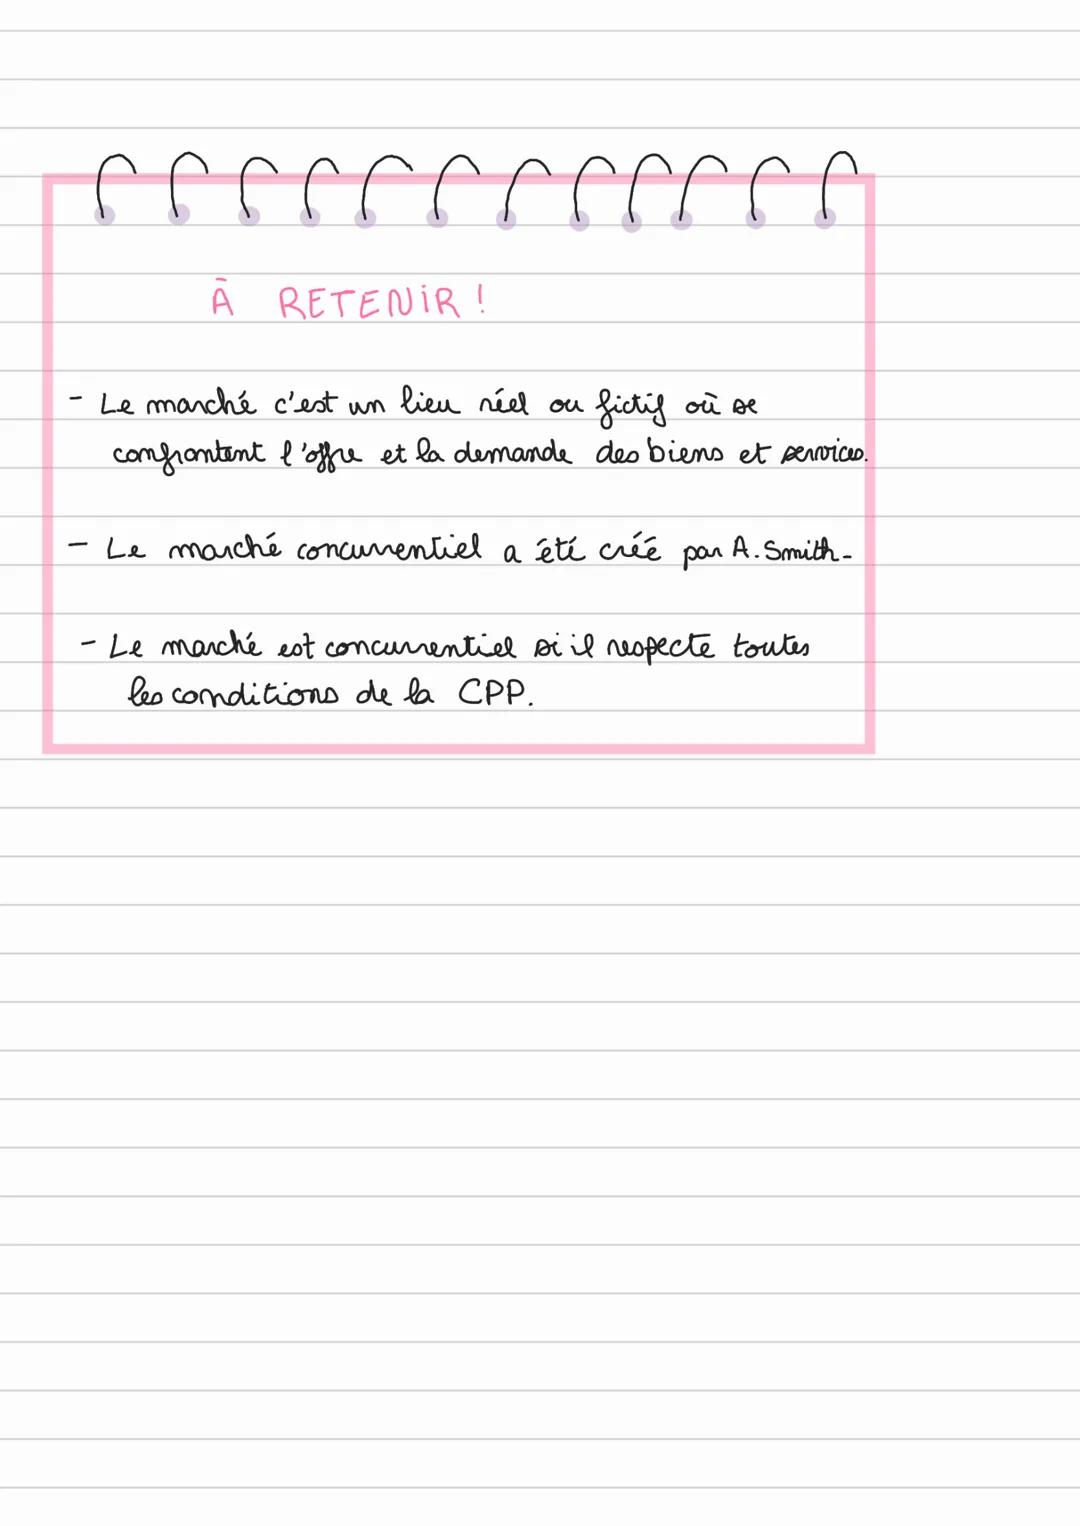 À RETENIR !
- Le marché c'est un lieu réel ou fictif où se
confrontent l'offre et la demande des biens et services.
- Le marché concurrentiel a été créé par A. Smith-
- Le marché est concurrentiel si il respecte toutes
les conditions de la CPP.